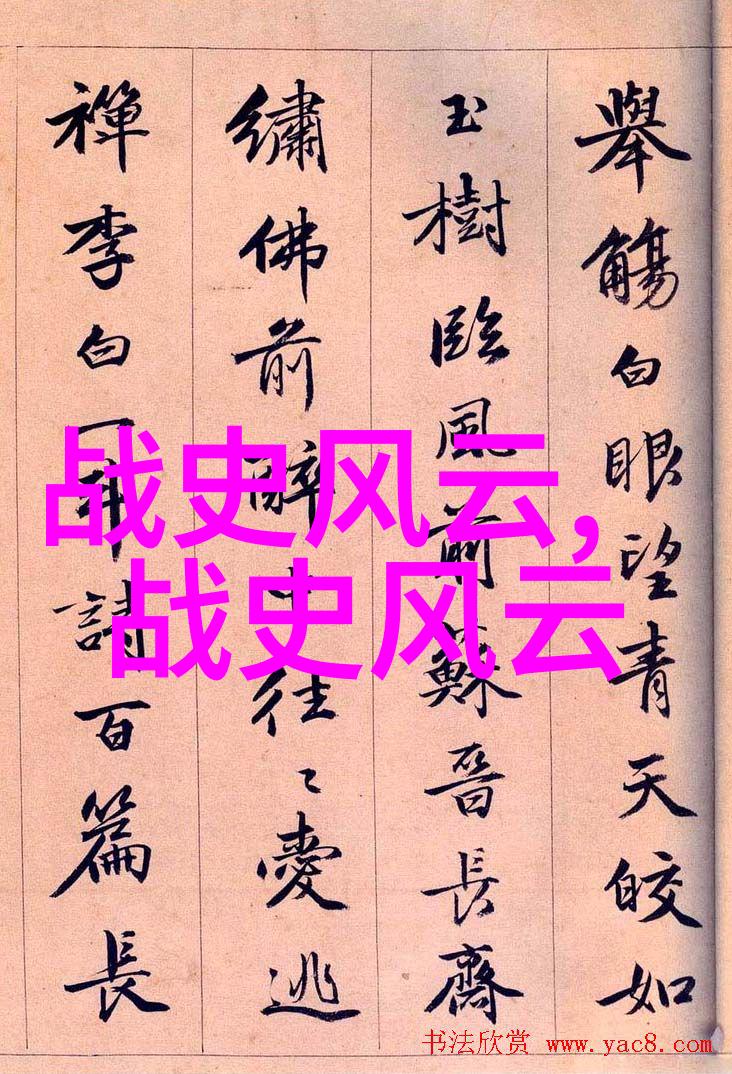 舉觴白眼望青天皎如
玉樹臨風前蘇晉長齋
繡佛前醉中往々愛逃
禪李白一斗請百篇長
战史风云,
战史风云
书法欣赏 www.yac8.com